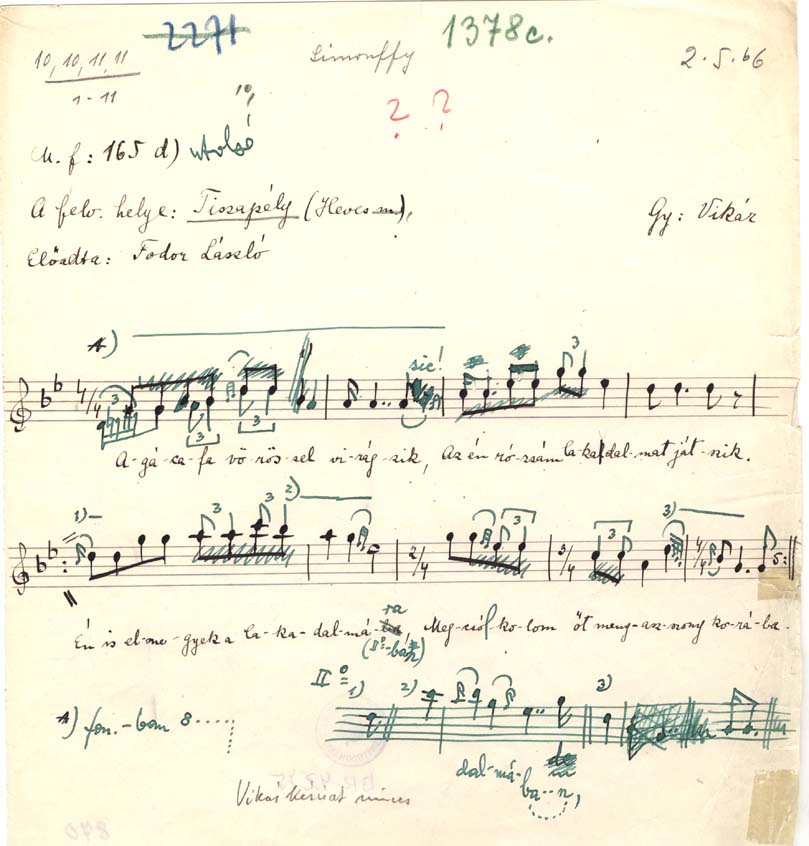 2271
1378c.
Simonffy
2.5.66
10, 10, 11, 11
1-11
1º,
? ?
M. f: 165 d) utolsó
A felv. helye: Tiszapély (Heves
Gy: Vikár
Előadta: Fodor László
sic!
A-gá-ca-fa vö-rös-sel vi-rág-zik, Az én ró-zsám la-ka dal-mat ját-szik.
1) 2) 3)
Én is el-me-gyek a la-ka-dal-má-ra Meg-csó-ko-lom öt meny-asz-szony ko-rá-ba.
(IIº -bán)
IIº 1) 2) 3)
fon.-ban 8
dal-má-ba-n,
nincs
870